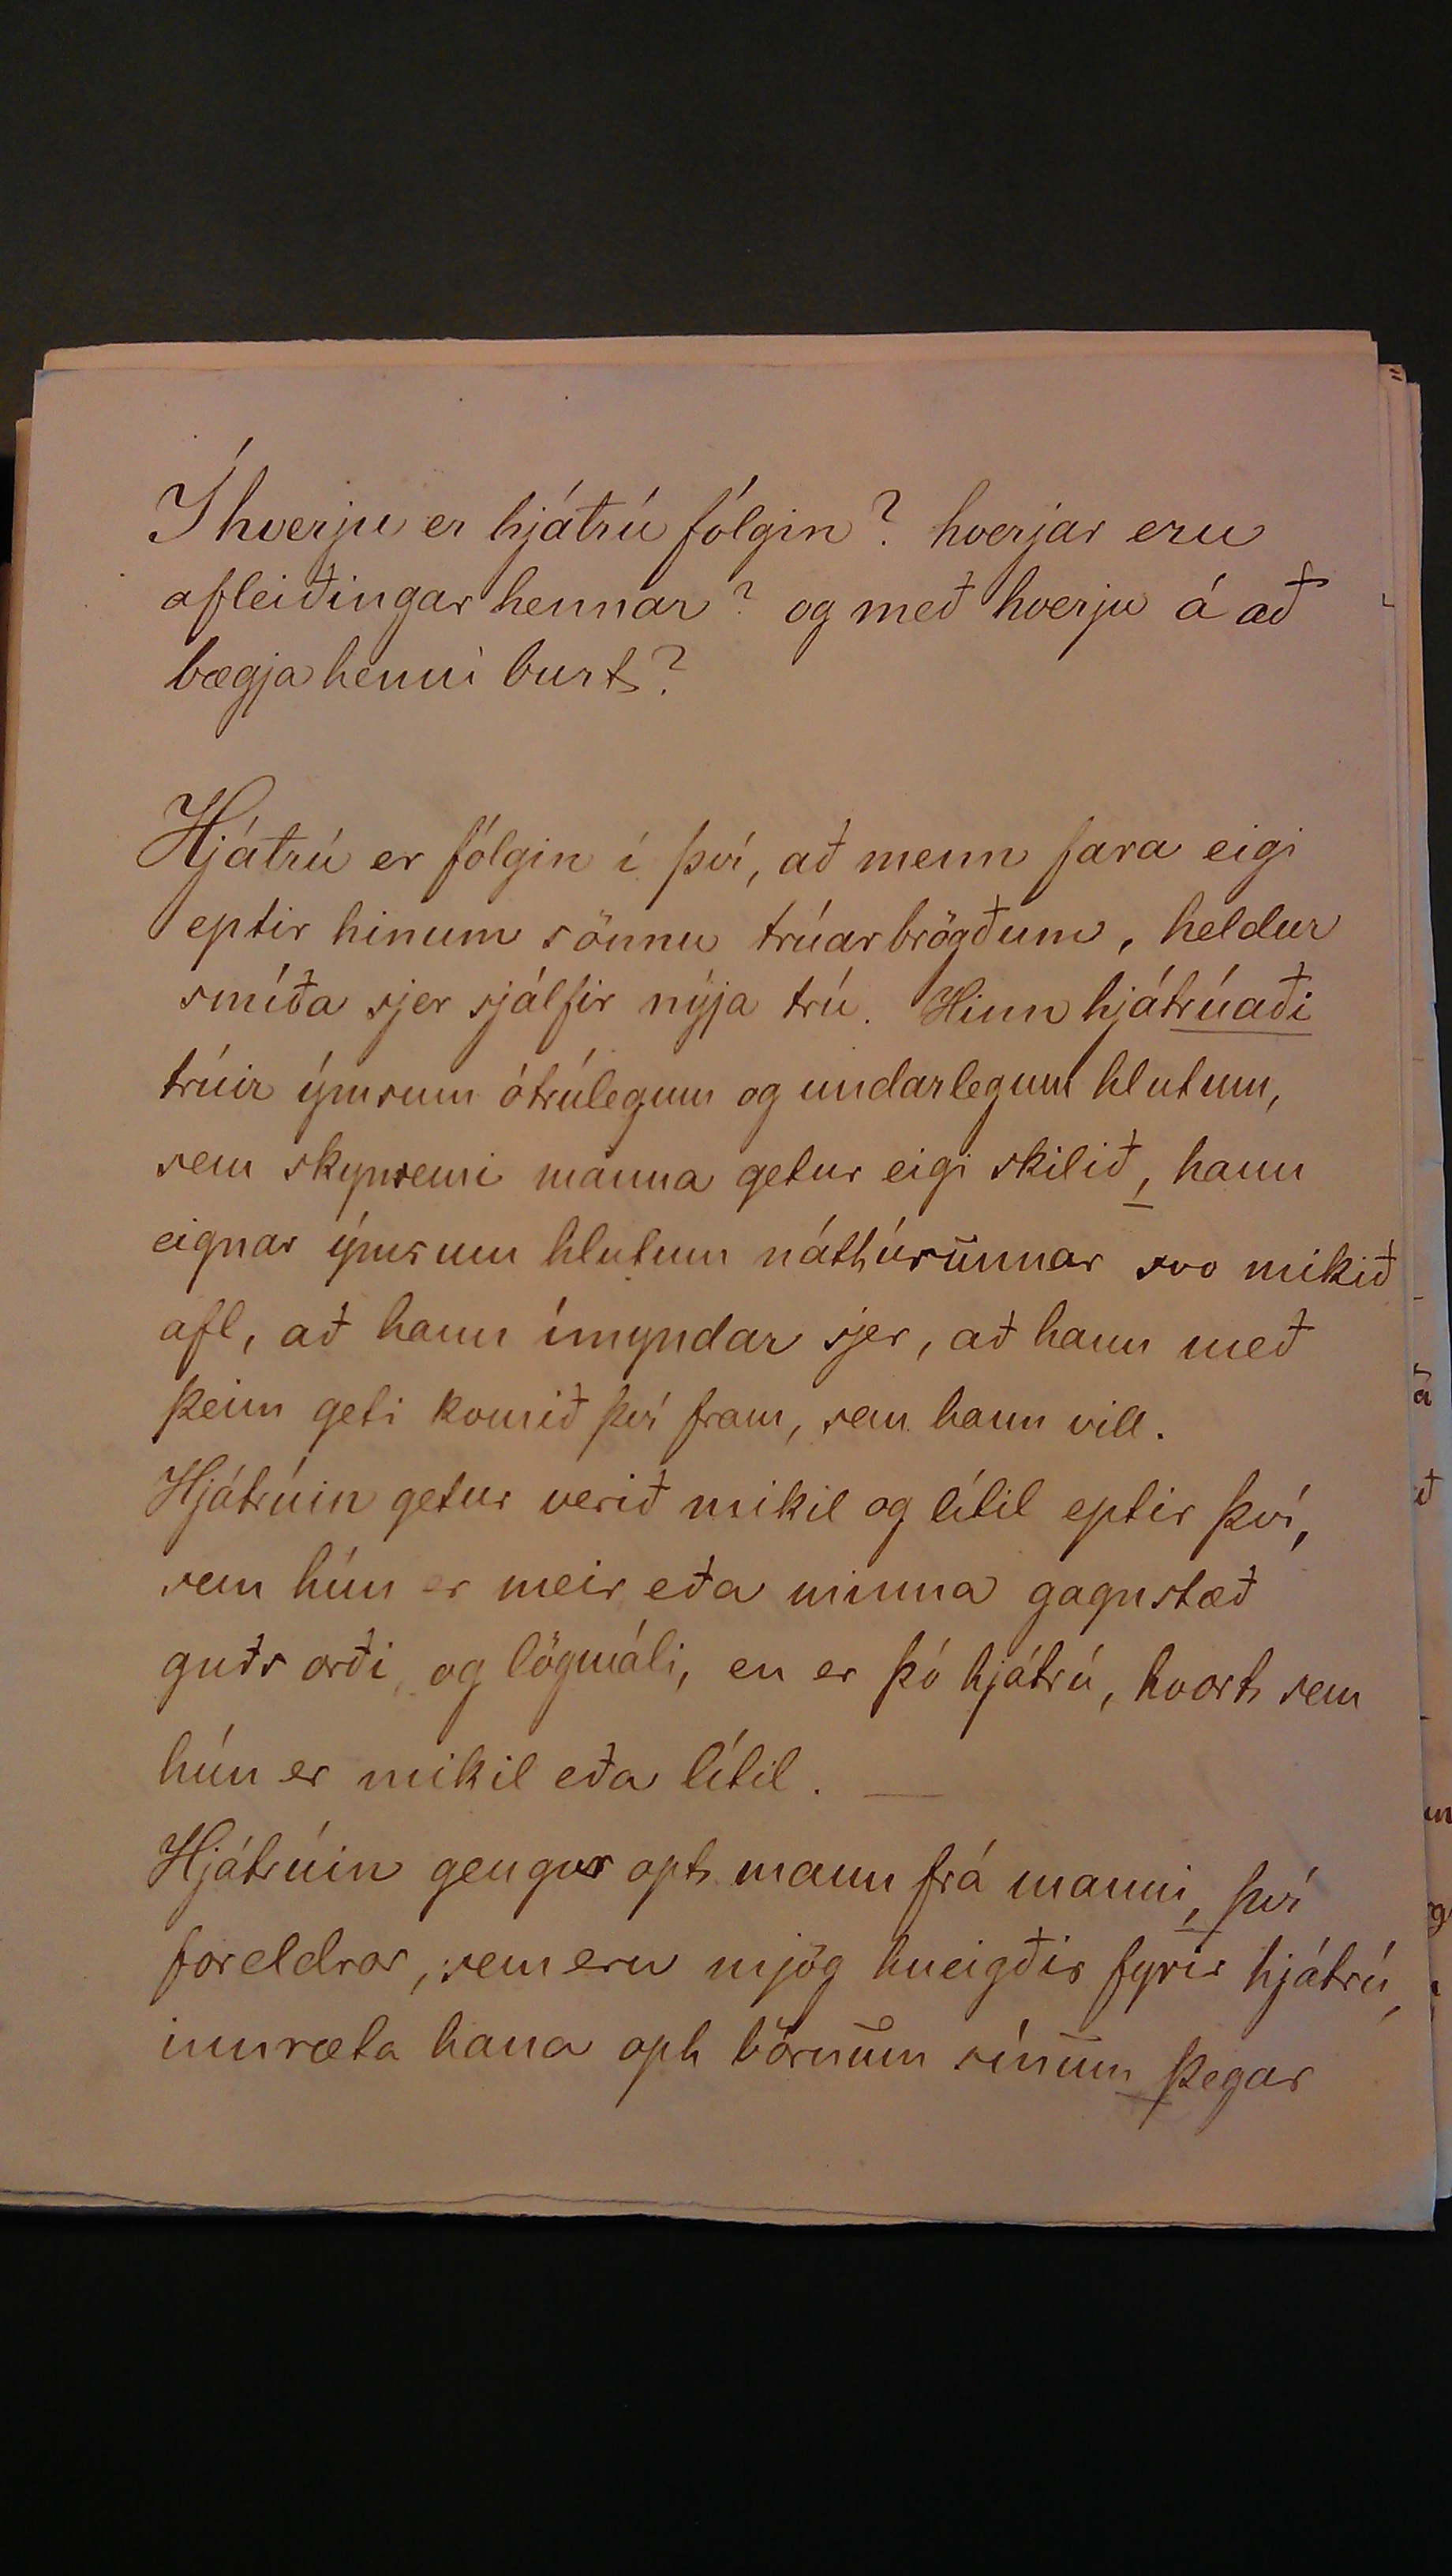 Í hverju er hjátrú fólgin? hverjar eru
afleiðingar hennar? og með hverju á að
bægja henni burt?
Hjátrú er fólgin í því, að menn fara eigi
eptir hinum sönnu trúarbrögðum, heldur
smíða sjer sjálfir nýja trú. Hinn hjátrúaði
trúir ýmsum ótrúlegum og undarlegum hlutum,
sem skynsemi manna getur eigi skilið, hann
eignar ýmsum hlutum náttúrunnar svo mikið
afl, að hann ímyndar sjer, að hann með
þeim geti komið því fram, sem hann vill.
Hjátrúin getur verið mikil og lítil eptir því,
sem hún er meir eða minna gagnstæð
guðs orði, og lögmáli, en er þó hjátrú, hvort sem
hún er mikil eða lítil. —
Hjátrúin gengur opt mann frá manni, því
foreldrar, sem eru mjög hneigðir fyrir hjátrú,
innræta hana opt börnum sínum þegar